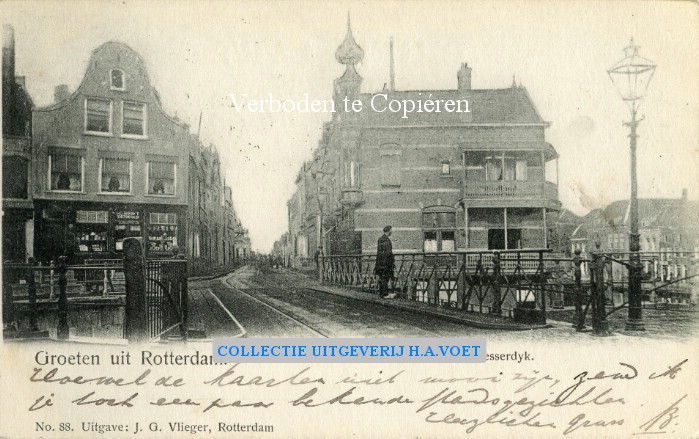 Verboden te Copiéren
Groeten uit Rotterdam.
COLLECTIE UITGEVERIJ H.A.VOET
esserdyk.
Hoewel de kaarten niet mooi zijn, zend ik
je toch een paar bekende stadsgezichten.
Hartelijken Groet
No. 88. Uitgave: J. G. Vlieger, Rotterdam